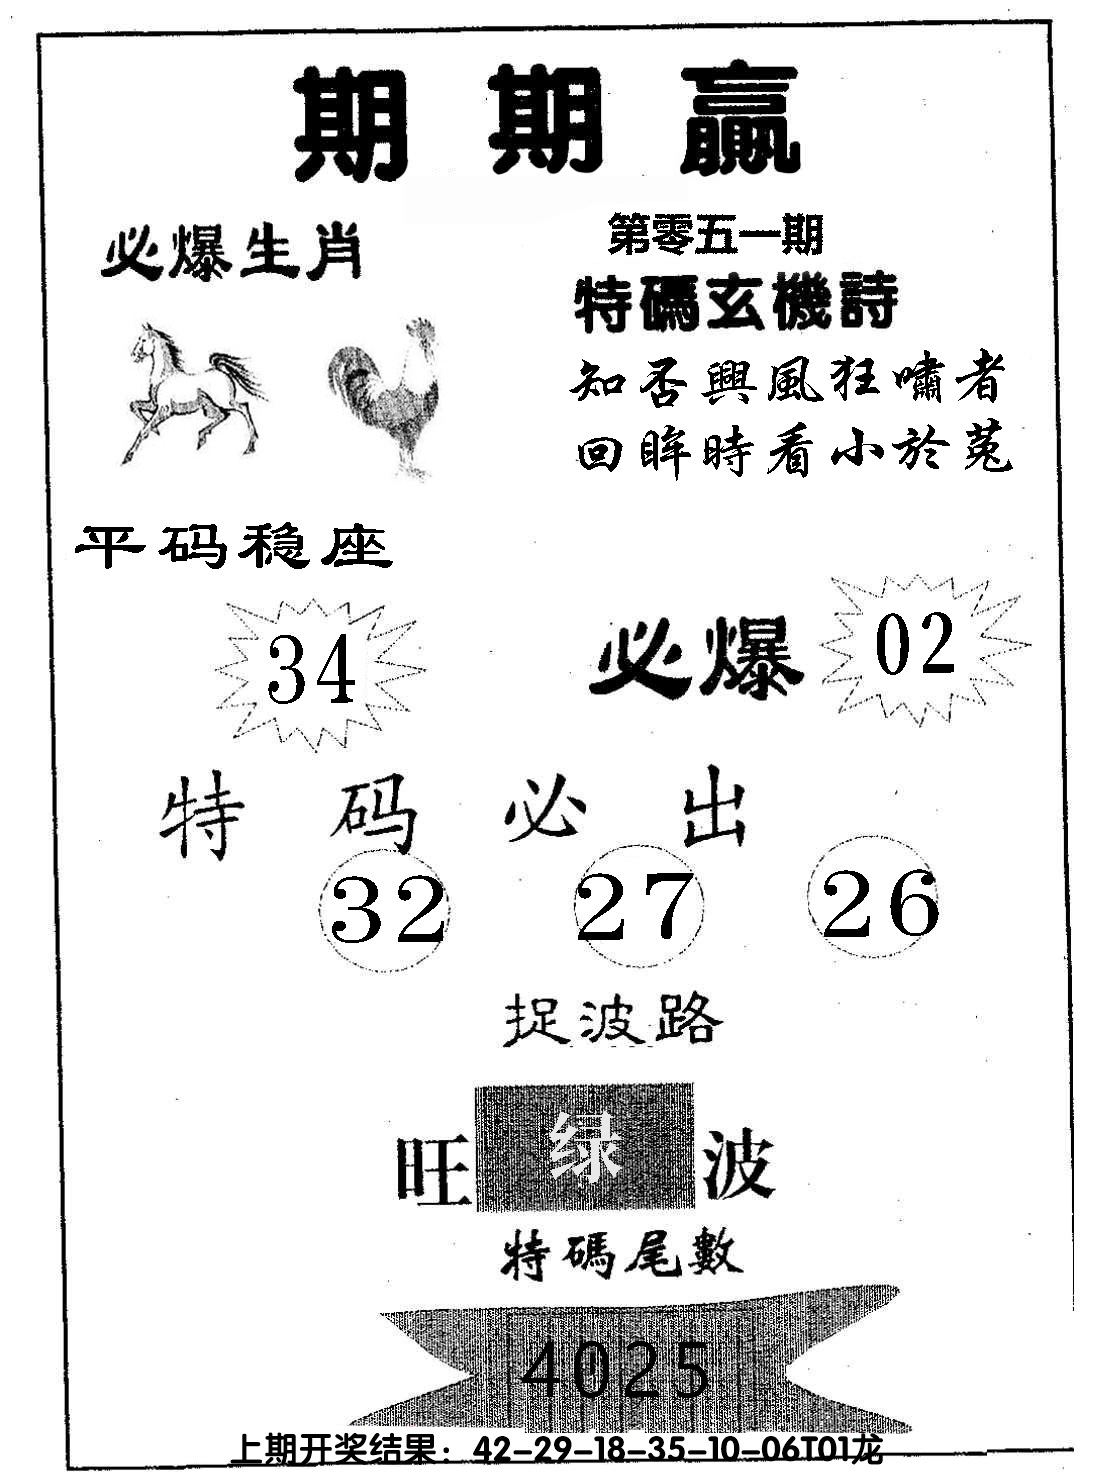 期期贏
必爆生肖
第零五一期
特碼玄機詩
知否興風狂嘯者
回眸時看小於菟
平码稳座
34
必爆 02
特码必出
32 27 26
捉波路
旺 绿 波
特碼尾數
4025
上期开奖结果：42-29-18-35-10-06T01龙